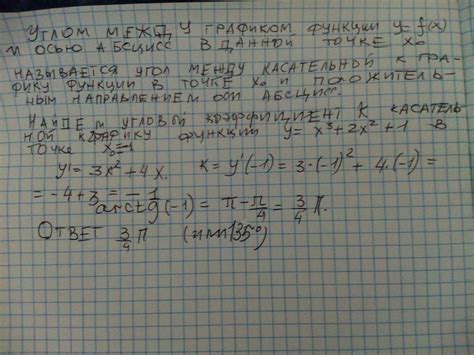 УГЛОМ МЕЖДУ ГРАФИКОМ ФУНКЦИИ y=f(x)
И ОСЬЮ АБСЦИСС В ДАННОЙ ТОЧКЕ x₀
НАЗЫВАЕТСЯ УГОЛ МЕЖДУ КАСАТЕЛЬНОЙ К ГРА-
ФИКУ ФУНКЦИИ В ТОЧКЕ x₀ И ПОЛОЖИТЕЛЬ-
НЫМ НАПРАВЛЕНИЕМ ОСИ АБСЦИСС.
НАЙДЕМ УГЛОВОЙ КОЭФФИЦИЕНТ К КАСАТЕЛЬ-
НОЙ К ГРАФИКУ ФУНКЦИИ y = x³+2x²+1 В
ТОЧКЕ x₀=-1
y'=3x²+4x. K=y'(-1)=3·(-1)²+4·(-1)=
=-4+3=-1
arctg(-1)=π-π/4=3/4 π.
ОТВЕТ 3/4 π (ИЛИ 135°)